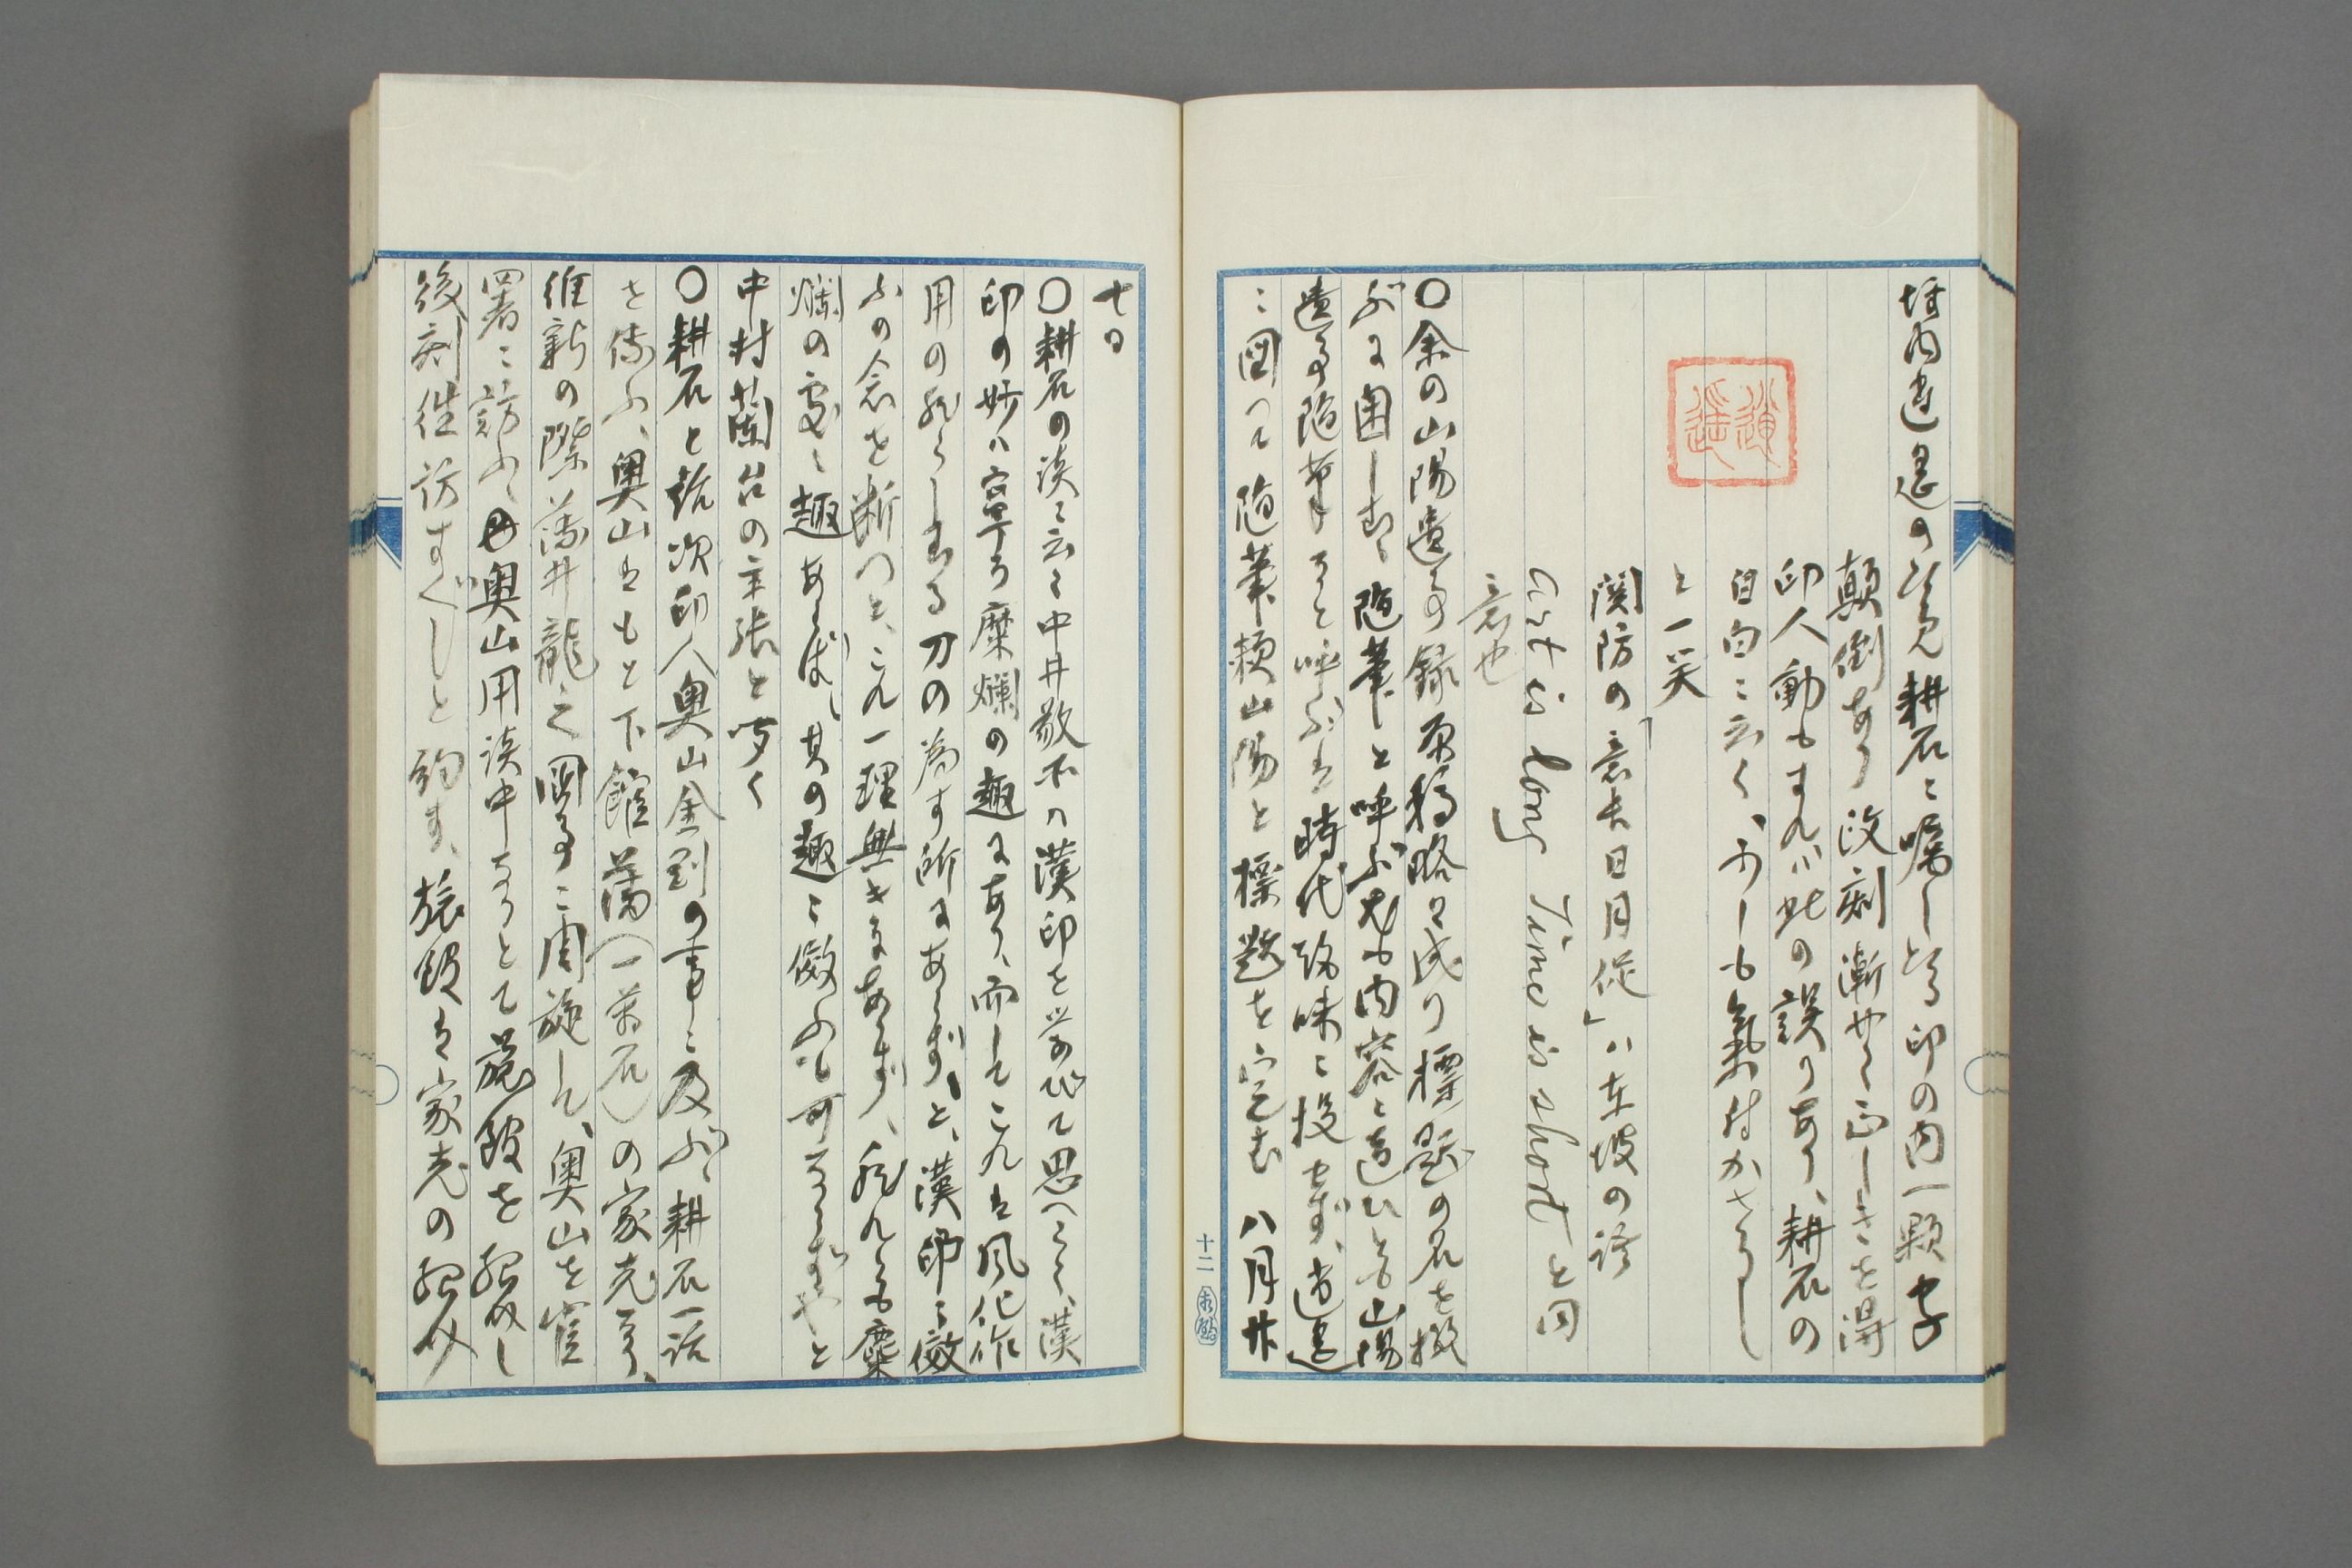 坪内逍遥の為兄耕石に嘱しとる印の内一顆字
顛倒あり改刻漸やく正しきを得
印人動もすれハ此の誤りあり、耕石の
自白に云く、少しも氣付かさりし
と一笑
逍遥
関防の「意長日月促」ハ東坡の語
art is long Time is short と同
意也
〇余の山陽遺事の録原稿略々成り標題の名を撰
ぶに困しむ、随筆と呼ぶ尤も内容に適ひとも山陽
遺事随筆なと呼ぶは時代趣味に投せず、逍遥
に図つて随筆頼山陽と標題を定む 八月廿
十二
七日
〇耕石の談に云く中井敬所ハ漢印を学びて思へらく、漢
印の妙ハ寧ろ糜爛の趣にあり、而してこれは風化作
用の然らしむる刀の為す所にあらずと、漢印に倣
ふの念を断つと、これ一理無きにあらず、然れとも糜
爛の処に趣あらば、其の趣に倣ふも可ならずやと
中村蘭台の主張と聞く
〇耕石と話次印人奥山金剛の事に及ぶ、耕石一話
を伝ふ、奥山はもと下館藩(一万石)の家老なり、
維新の際藩井龍之国事に周旋し、奥山を官
署に訪ふ、毋奥山用談中なりとて旅館を紹介し
後刻往訪すべしと約す、旅館は家老の紹介